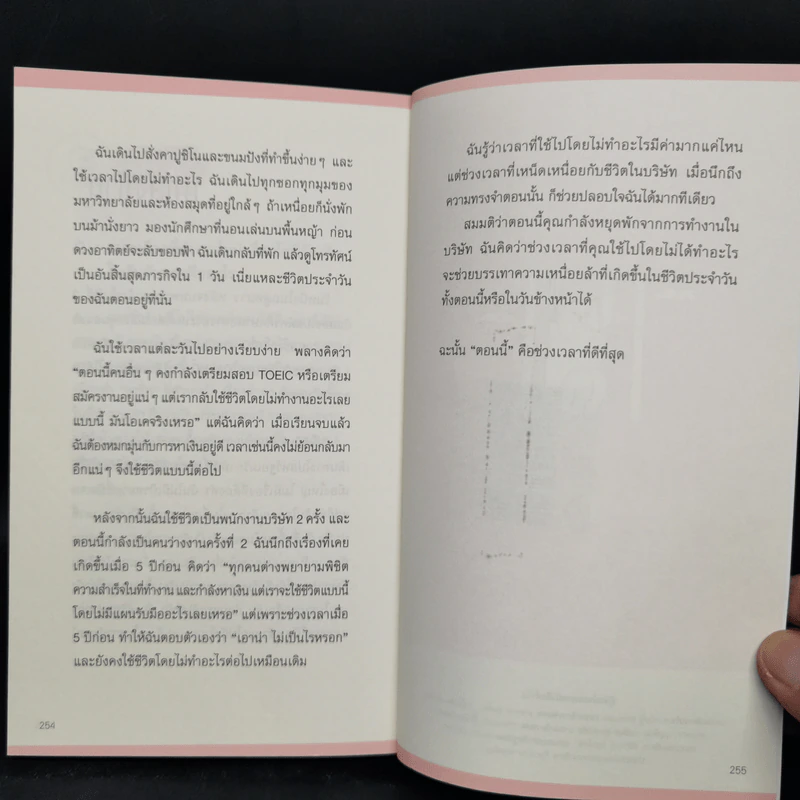 ฉันเดินไปสั่งคาปูชิโนและขนมปังที่ทำขึ้นง่ายๆ และ
ใช้เวลาไปโดยไม่ทำอะไร ฉันเดินไปทุกซอกทุกมุมของ
มหาวิทยาลัยและห้องสมุดที่อยู่ใกล้ๆ ถ้าเหนื่อยก็นั่งพัก
บนม้านั่งยาว มองนักศึกษาที่นอนเล่นบนพื้นหญ้า ก่อน
ดวงอาทิตย์จะลับขอบฟ้า ฉันเดินกลับที่พัก แล้วดูโทรทัศน์
เป็นอันสิ้นสุดภารกิจใน 1 วัน เนี่ยแหละชีวิตประจำวัน
ของฉันตอนอยู่ที่นั่น
ฉันใช้เวลาแต่ละวันไปอย่างเรียบง่าย พลางคิดว่า
“ตอนนี้คนอื่นๆ คงกำลังเตรียมสอบ TOEIC หรือเตรียม
สมัครงานอยู่แน่ๆ แต่เรากลับใช้ชีวิตโดยไม่ทำงานอะไรเลย
แบบนี้ มันโอเคจริงเหรอ” แต่ฉันคิดว่า เมื่อเรียนจบแล้ว
ฉันต้องหมกมุ่นกับการหาเงินอยู่ดี เวลาเช่นนี้คงไม่ย้อนกลับมา
อีกแน่ๆ จึงใช้ชีวิตแบบนี้ต่อไป
หลังจากนั้นฉันใช้ชีวิตเป็นพนักงานบริษัท 2 ครั้ง และ
ตอนนี้กำลังเป็นคนว่างงานครั้งที่ 2 ฉันนึกถึงเรื่องที่เคย
เกิดขึ้นเมื่อ 5 ปีก่อน คิดว่า “ทุกคนต่างพยายามพิชิต
ความสำเร็จในที่ทำงาน และกำลังหาเงิน แต่เราจะใช้ชีวิตแบบนี้
โดยไม่มีแผนรับมืออะไรเลยเหรอ” แต่เพราะช่วงเวลาเมื่อ
5 ปีก่อน ทำให้ฉันตอบตัวเองว่า “เอาน่า ไม่เป็นไรหรอก”
และยังคงใช้ชีวิตโดยไม่ทำอะไรต่อไปเหมือนเดิม
254
ฉันรู้ว่าเวลาที่ใช้ไปโดยไม่ทำอะไรมีค่ามากแค่ไหน
แต่ช่วงเวลาที่เหน็ดเหนื่อยกับชีวิตในบริษัท เมื่อนึกถึง
ความทรงจำตอนนั้น ก็ช่วยปลอบใจฉันได้มากทีเดียว
สมมติว่าตอนนี้คุณกำลังหยุดพักจากการทำงานใน
บริษัท ฉันคิดว่าช่วงเวลาที่คุณใช้ไปโดยไม่ได้ทำอะไร
จะช่วยบรรเทาความเหนื่อยล้าที่เกิดขึ้นในชีวิตประจำวัน
ทั้งตอนนี้หรือในวันข้างหน้าได้
ฉะนั้น “ตอนนี้” คือช่วงเวลาที่ดีที่สุด
255